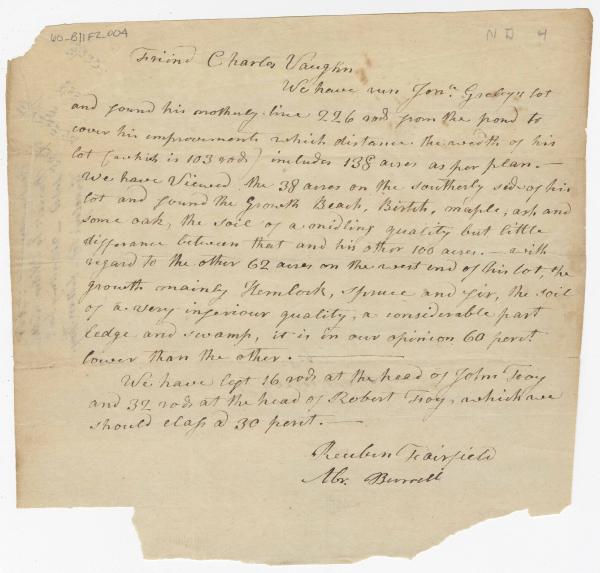 60-B11F2_004
N D 4
Friend Charles Vaughn
We have run Jonn. Greleys lot
and found his northerly line 226 rods from the pond to
cover his improvements which distance the width of his
lot (which is 103 rods) includes 138 acres as per plan.—
We have Viewed the 38 acres on the southerly side of his
lot and found the Growth Beach, Birtch, maple, ash and
some oak, the soil of a midling quality but little
differance between that and his other 100 acres.— with
regard to the other 62 acres on the west end of his lot, the
growth mainly Hemlock, spruce and fir, the soil
of a very inferiour quality, a considerable part
ledge and swamp, it is in our opinion 60 perct
lower than the other.—
We have left 16 rods at the head of John
and 32 rods at the head of Robert which we
should class a 30 perct.—
Reuben Fairfield
Abr. Burrell